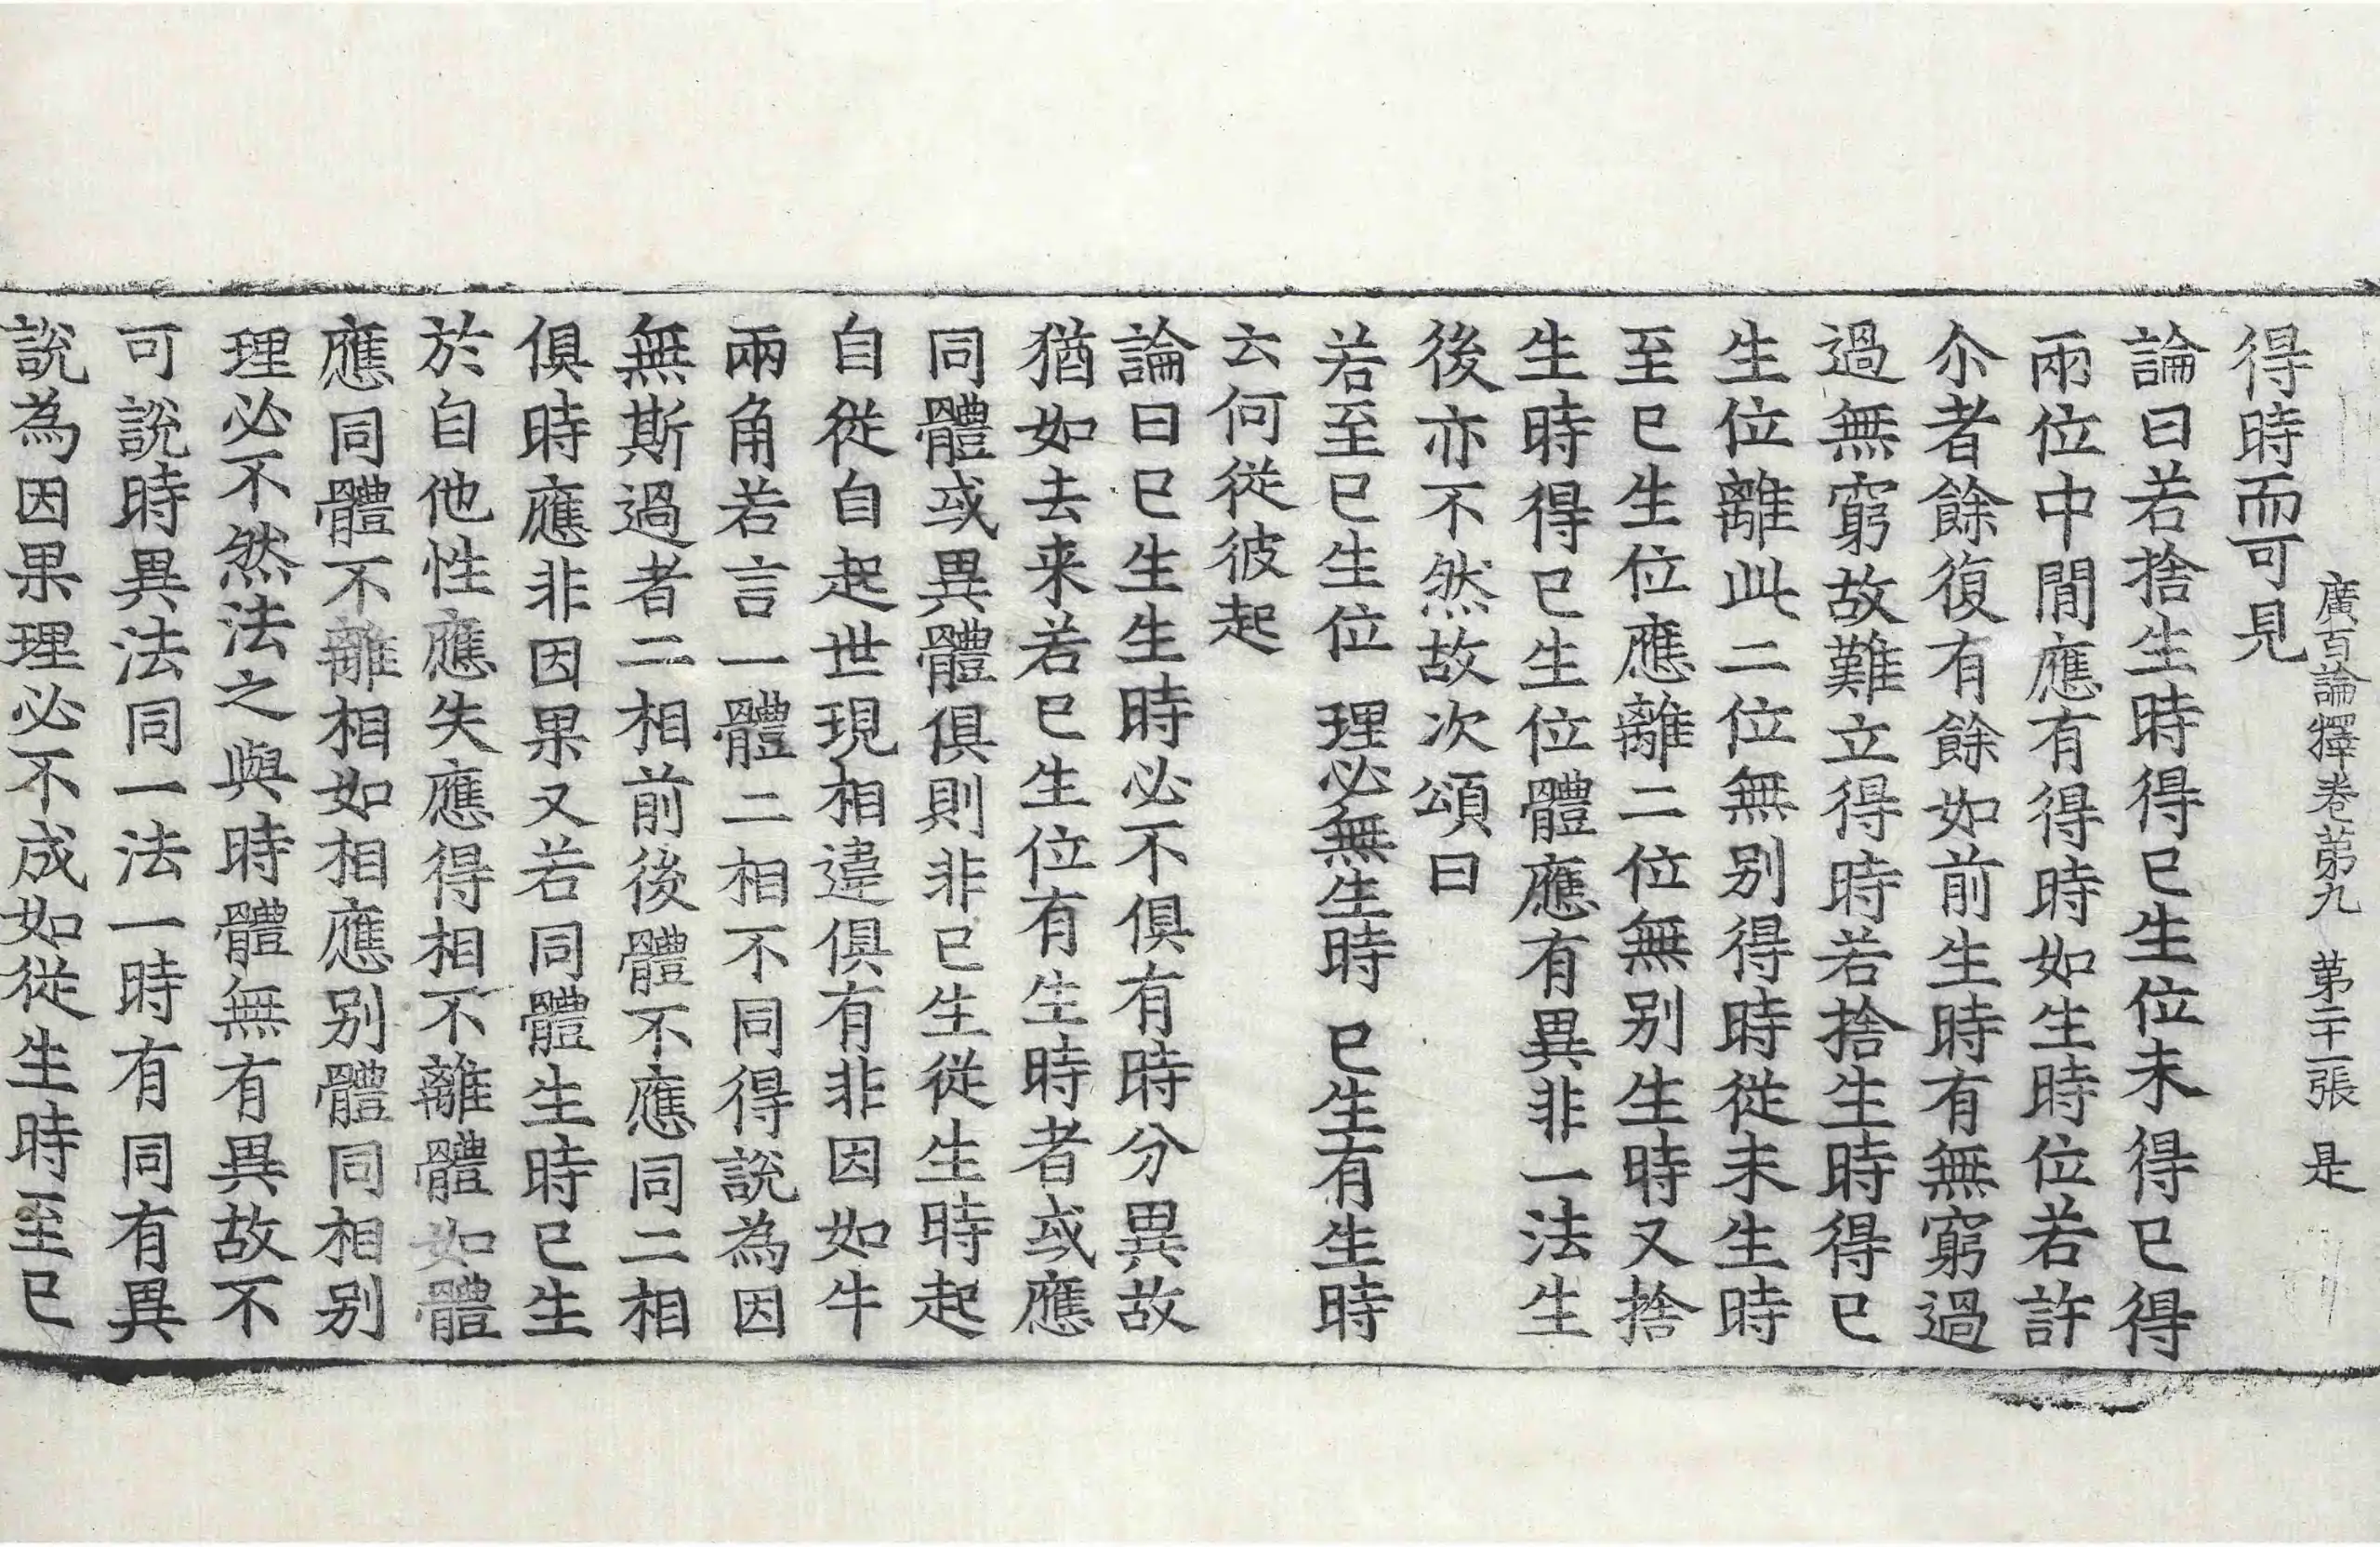 廣百論釋卷第九　第二十一張　是
得時而可見
論曰若捨生時得已生位未得已得
兩位中間應有得時如生時位若許
尒者餘復有餘如前生時有無窮過
過無窮故難立得時若捨生時得已
生位離此二位無别得時從未生時
至已生位應離二位無别生時又捨
生時得已生位體應有異非一法生
後亦不然故次頌曰
若至已生位　理必無生時　已生有生時
云何從彼起
論曰已生生時必不俱有時分異故
猶如去来若已生位有生時者或應
同體或異體俱則非已生從生時起
自從自起世現相違俱有非因如牛
兩角若言一體二相不同得說為因
無斯過者二相前後體不應同二相
俱時應非因果又若同體生時已生
於自他性應失應得相不離體如體
應同體不離相如相應别體同相别
理必不然法之與時體無有異故不
可說時異法同一法一時有同有異
說為因果理必不成如從生時至已